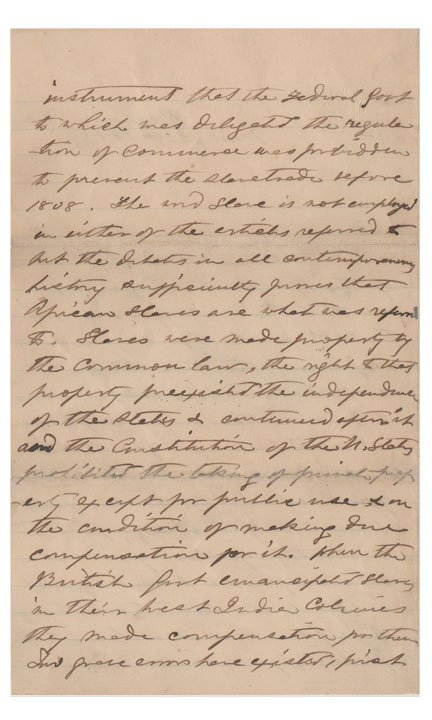 instrument that the Federal Govt
to which was deligatd the regula
tion of Commerce was forbidden
to prevent the slave trade before
1808. The word Slave is not employed
in either of the articles referred to
but the debates in all contemporaneny
history sufficiently proves that
African slaves are what was referrd
to. Slaves were made property by
the common law, the right to that
property preexistd the independence
of the States & continued after it
and the Constitution of the U. States
prohibited the taking of private prop
erty except for public use & on
the condition of making due
compensation for it. When the
British Govt emancipatd Slaves
in their West India Colonies
they made compensation for them
Two grave errors have existed, first